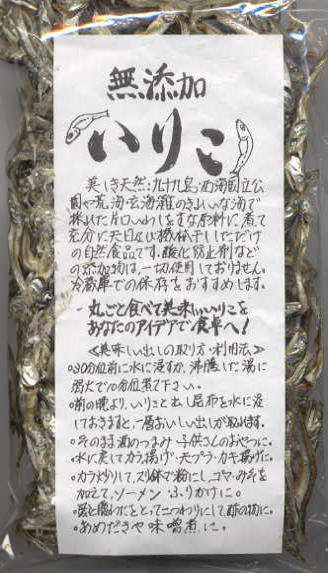 無添加
いりこ
美しき天然:九十九島西海国立公
園や荒海玄海灘のきれいな海で
採れた片口いわしをすな原料に、煮て
充分に天日及び機械干ししただけ
の自然食品です。酸化防止剤など
の添加物は、一切使用しておりません。
冷蔵庫での保存をおすすめします。
丸ごと食べて美味しいいりこを
あなたのアイデアで食卓へ!
≪美味しい出しの取り方・利用法≫
○30分位前に水に浸すか、沸騰した湯に
弱火で10分位煮て下さい。
○前の晩より、いりこと出し昆布を水に浸
しておきますと、一層おいしい出しが取れます。
○そのまま酒のつまみ 子供さんのおやつに。
○水に戻してカラ揚げ・天プラ・カキ揚げに。
○カラ炒りして、スリ鉢で粉にし、ゴマ・みそを
加えて、ソーメン ふりかけに。
○頭と腸わたをとって二つわりにして酢の物に。
○あめだきや味噌煮に。